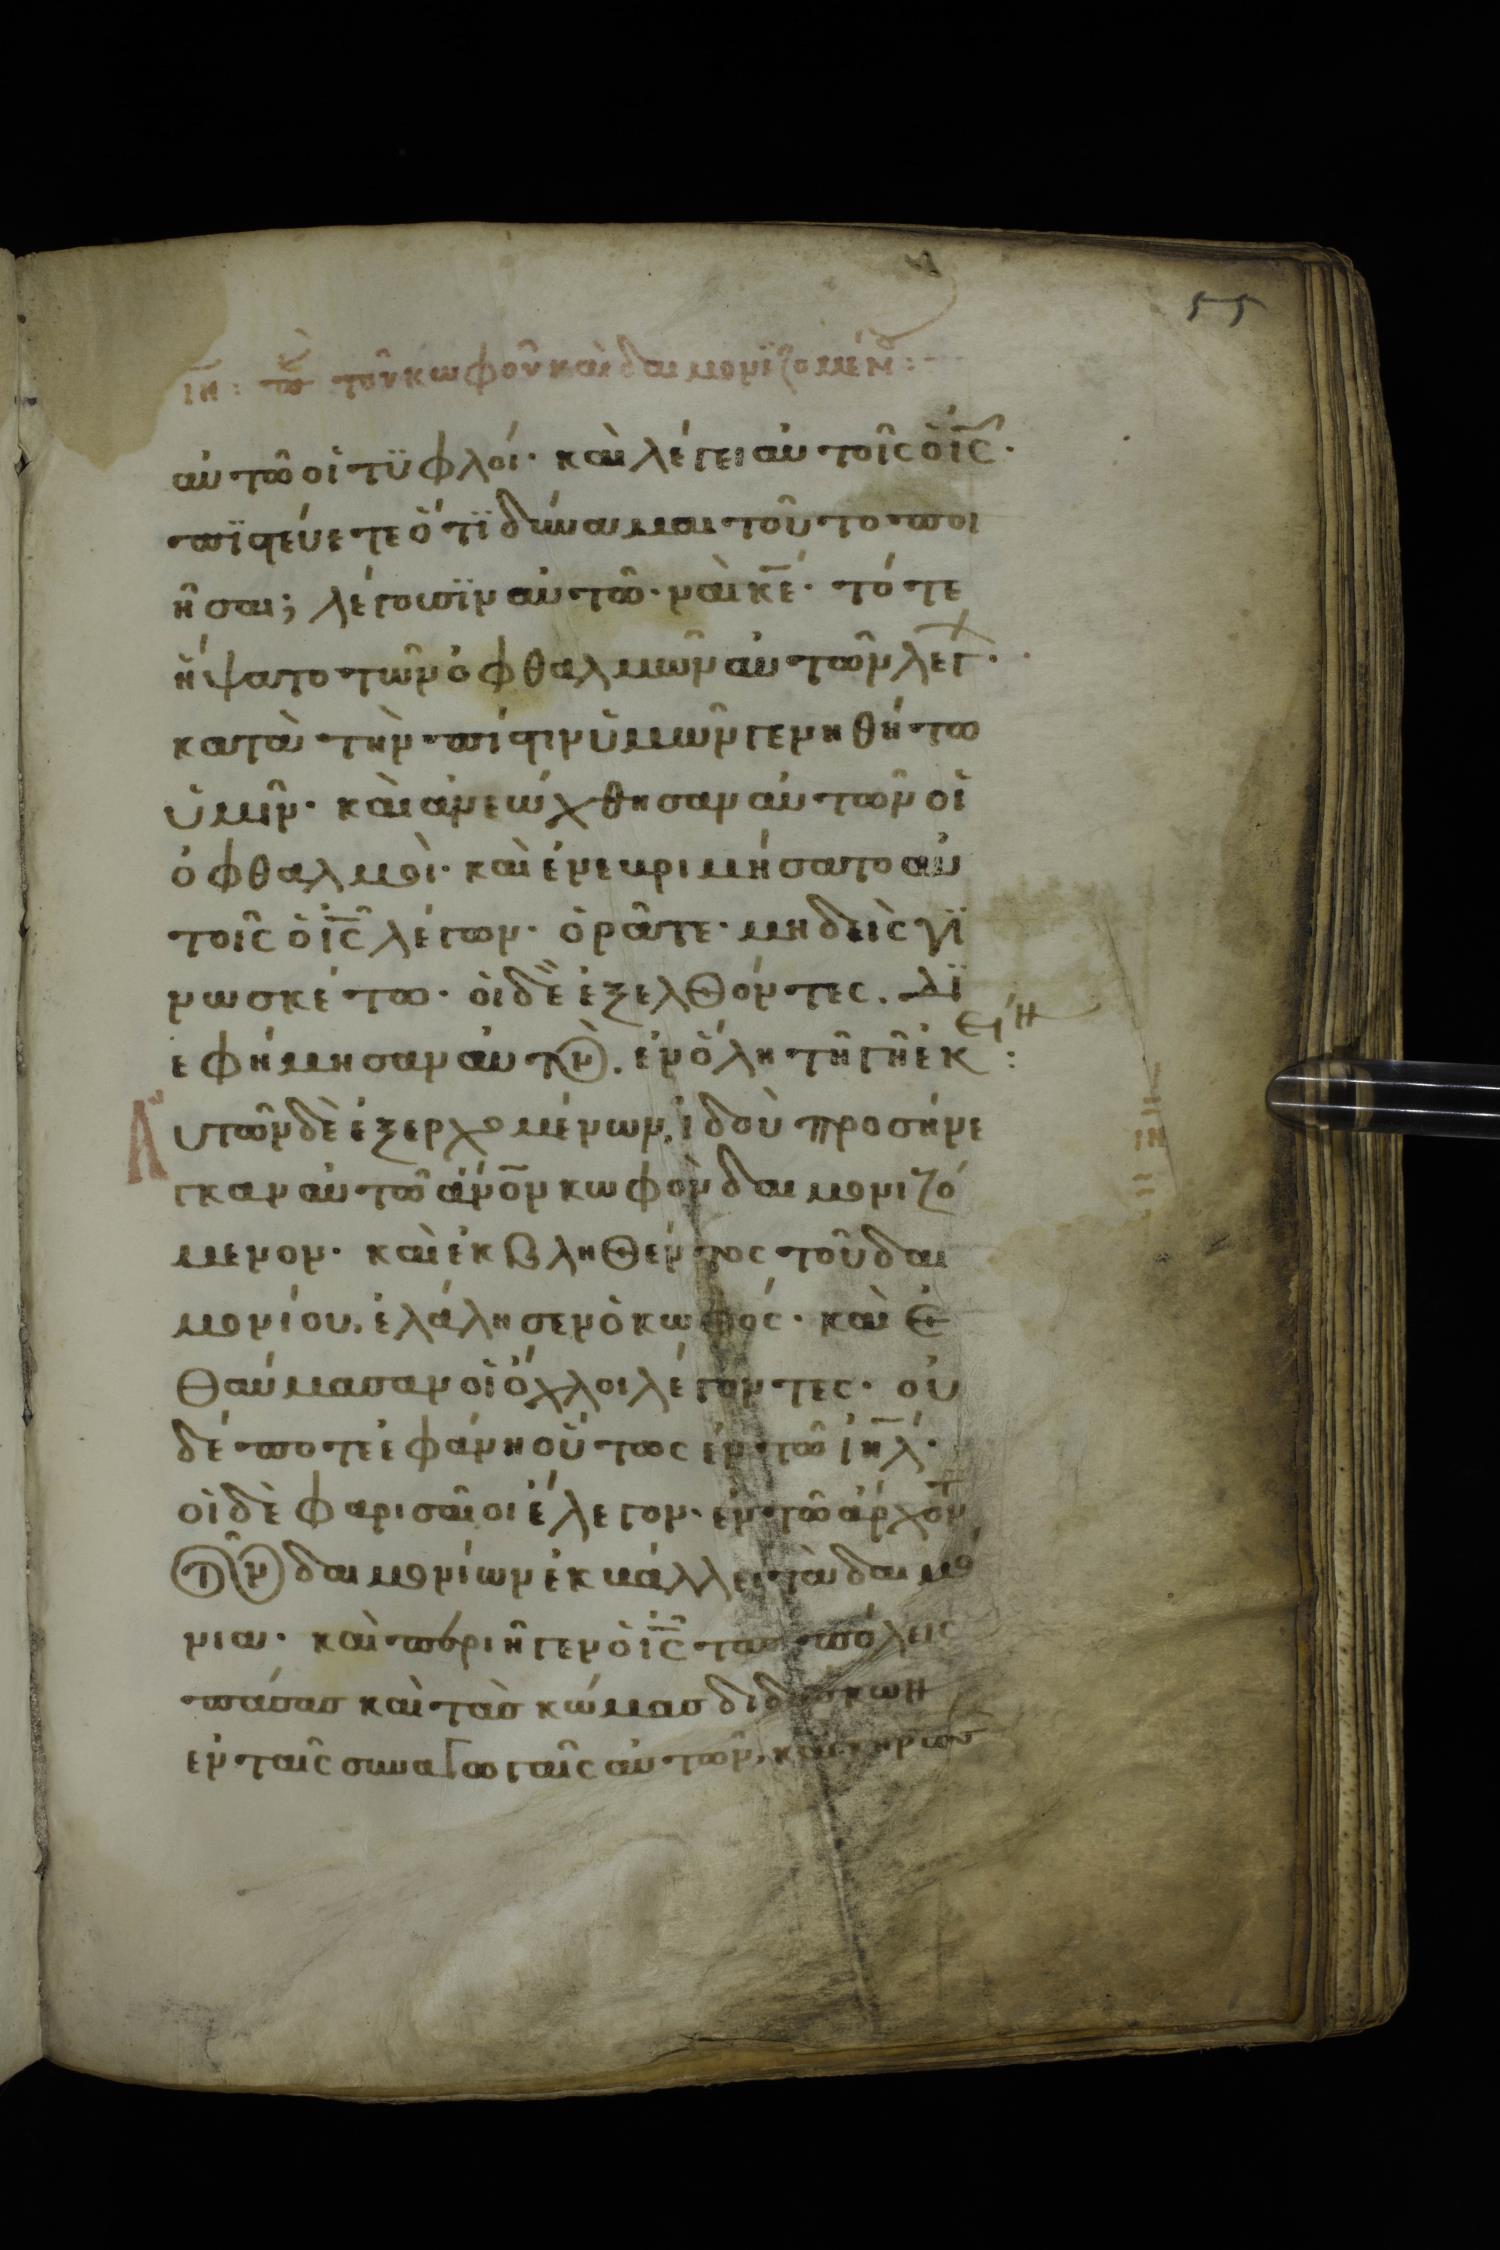 55
ιη: π τοῦ κωφοῦ καὶ δαιμονϊζομέν:
αὐτῶ οἱ τϋφλοί· καὶ λέγει αὐτοῖς ὁ ις̅·
πϊστεύετε ὅτϊ δύναμαι τοῦτο ποι
ῆσαι; λέγουσϊν αὐτῶ· ναὶ κε̅· τότε
ἥψατο τῶν ὀφθαλμῶν αὐτῶν λεγ·
κατὰ τὴν πίστιν ὑμῶν γενηθήτω
ὑμῖν· καὶ ἀνεώχθησαν αὐτῶν οἱ
ὀφθαλμοὶ· καὶ ἐνεβριμήσατο αὐ
τοῖς ὁ ις̅ λέγων· ὁρᾶτε· μηδεὶς γϊ
νωσκέτω· οἱ δὲ ἐξελθόντες. δϊ
εφήμησαν αὐτὸν. ἐν ὅλη τῆ γῆ ἐκείν:
Αυτῶν δὲ ἐξερχομένων, ἰδοὺ προσήνε
ιη
γκαν αὐτῶ ἄνο̅ν κωφὸν δαιμονιζό
μενον· καὶ ἐκβληθέντος τοῦ δαι
μονίου, ἐλάλησεν ὁ κωφός· καὶ ἐ
θαύμασαν οἱ ὄχλοι λέγοντες· οὐ
δέποτε ἐφάνη οὕτως ἐν τῶ ιη̅λ·
οἱ δὲ φαρισαῖοι ἔλεγον· ἐν τῶ ἄρχοντ
τῶν δαιμονίων ἐκβάλλει τὰ δαιμό
νια· καὶ περιῆγεν ὁ ις̅ τὰς πόλεις
πάσας καὶ τὰς κώμας διδάσκων
ἐν ταῖς συναγωγαῖς αὐτῶν, καὶ κηρύσ